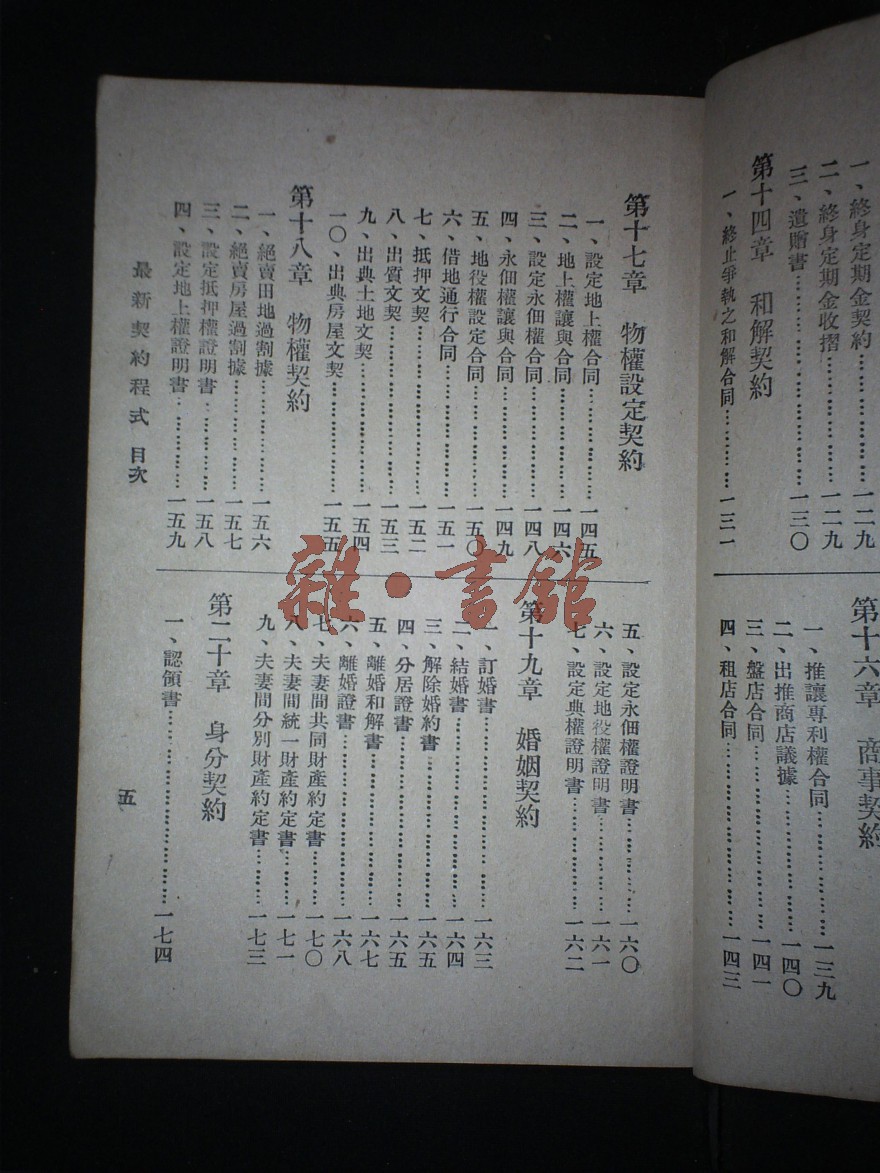 一、終身定期金契約………一二九
二、終身定期金收摺………一二九
三、遺贈書………一三〇
第十四章　和解契約
一、終止爭執之和解合同………一三一
第十六章　商事契約
一、推讓專利權合同………一三九
二、出推商店議據………一四〇
三、盤店合同………一四一
四、租店合同………一四三
第十七章　物權設定契約
一、設定地上權合同………一四五
二、地上權讓與合同………一四六
三、設定永佃權合同………一四八
四、永佃權讓與合同………一四九
五、地役權設定合同………一五〇
六、借地通行合同………一五一
七、抵押文契………一五二
八、出質文契………一五三
九、出典土地文契………一五四
一〇、出典房屋文契………一五五
第十八章　物權契約
一、絕賣田地過割據………一五六
二、絕賣房屋過割據………一五七
三、設定抵押權證明書………一五八
四、設定地上權證明書………一五九
五、設定永佃權證明書………一六〇
六、設定地役權證明書………一六一
七、設定典權證明書………一六二
第十九章　婚姻契約
一、訂婚書………一六三
二、結婚書………一六四
三、解除婚約書………一六五
四、分居證書………一六五
五、離婚和解書………一六七
六、離婚證書………一六八
七、夫妻間共同財產約定書………一七〇
八、夫妻間統一財產約定書………一七一
九、夫妻間分別財產約定書………一七三
第二十章　身分契約
一、認領書………一七四
最新契約程式　目次
五
雜·書館